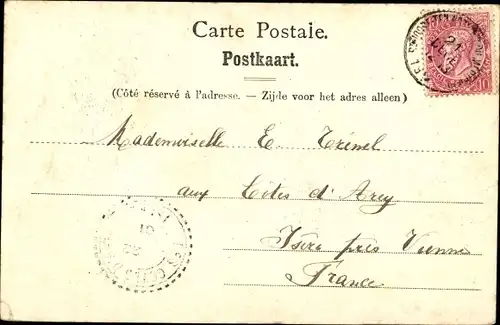 Carte Postale.
Postkaart.
(Côté réservé à l'adresse. — Zijde voor het adres alleen)
Mademoiselle E.
aux Côtes d'Arey
Isère près Vienne
France
10
21